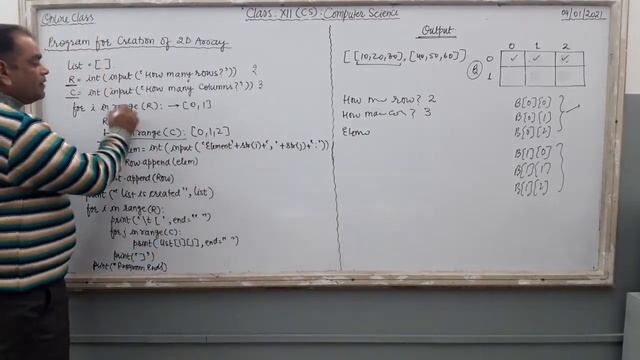 Online Class
Class: XII (CS): Computer Science
04/01/2021
Program for Creation of 2D Array
list = [ ]
R = int (input ('How many rows?')) 2
C = int (input ('How many Columns?')) 3
for i in range (R): → [0,1]
R
range (C): [0,1,2]
lem = int (input ('Element'+str(i)+','+str(j)+':'))
Row.append (elem)
t.append (Row)
print ("list is created", list)
for i in range (R):
print ('\t [', end=" ")
for j in range (C)
print (list [i][j], end=" ")
print ("]")
print ("Program Ends)
Output
[ [10,20,30], [40,50,60] ]
B
0 1 2
0 ✓ ✓ ✓
1
How row? 2
How ? 3
Elem
B[0][0]
B[0][1]
B[0][2]
B[1][0]
B[1][1]
B[1][2]